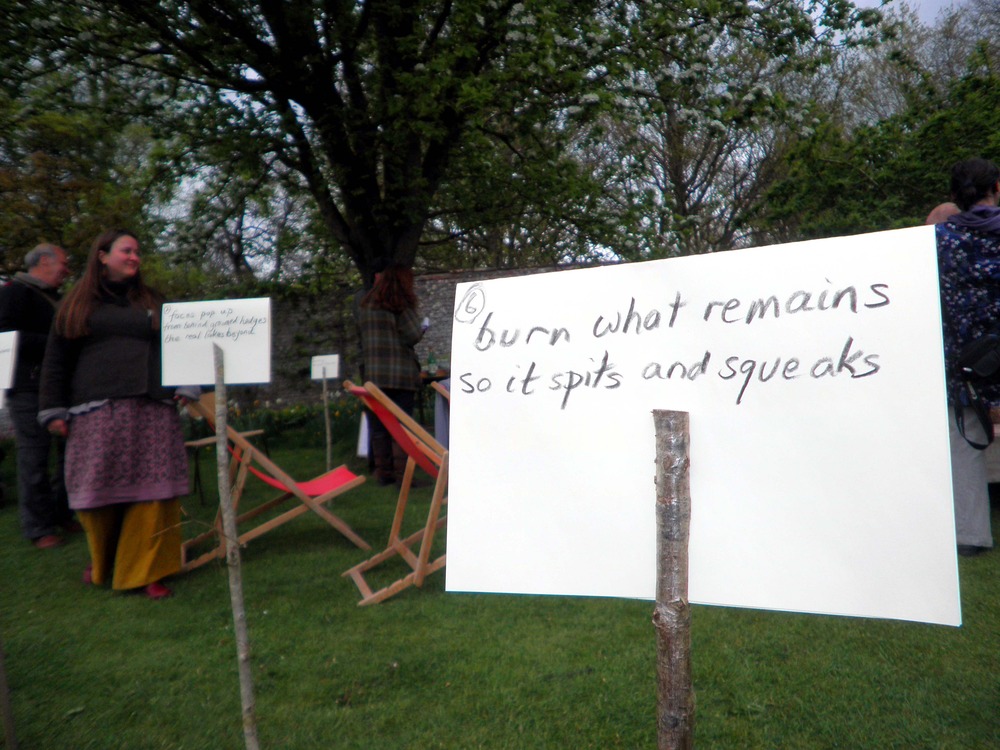 6
burn what remains
so it spits and squeaks
faces pop up
from behind ground hedges
the real lakes beyond